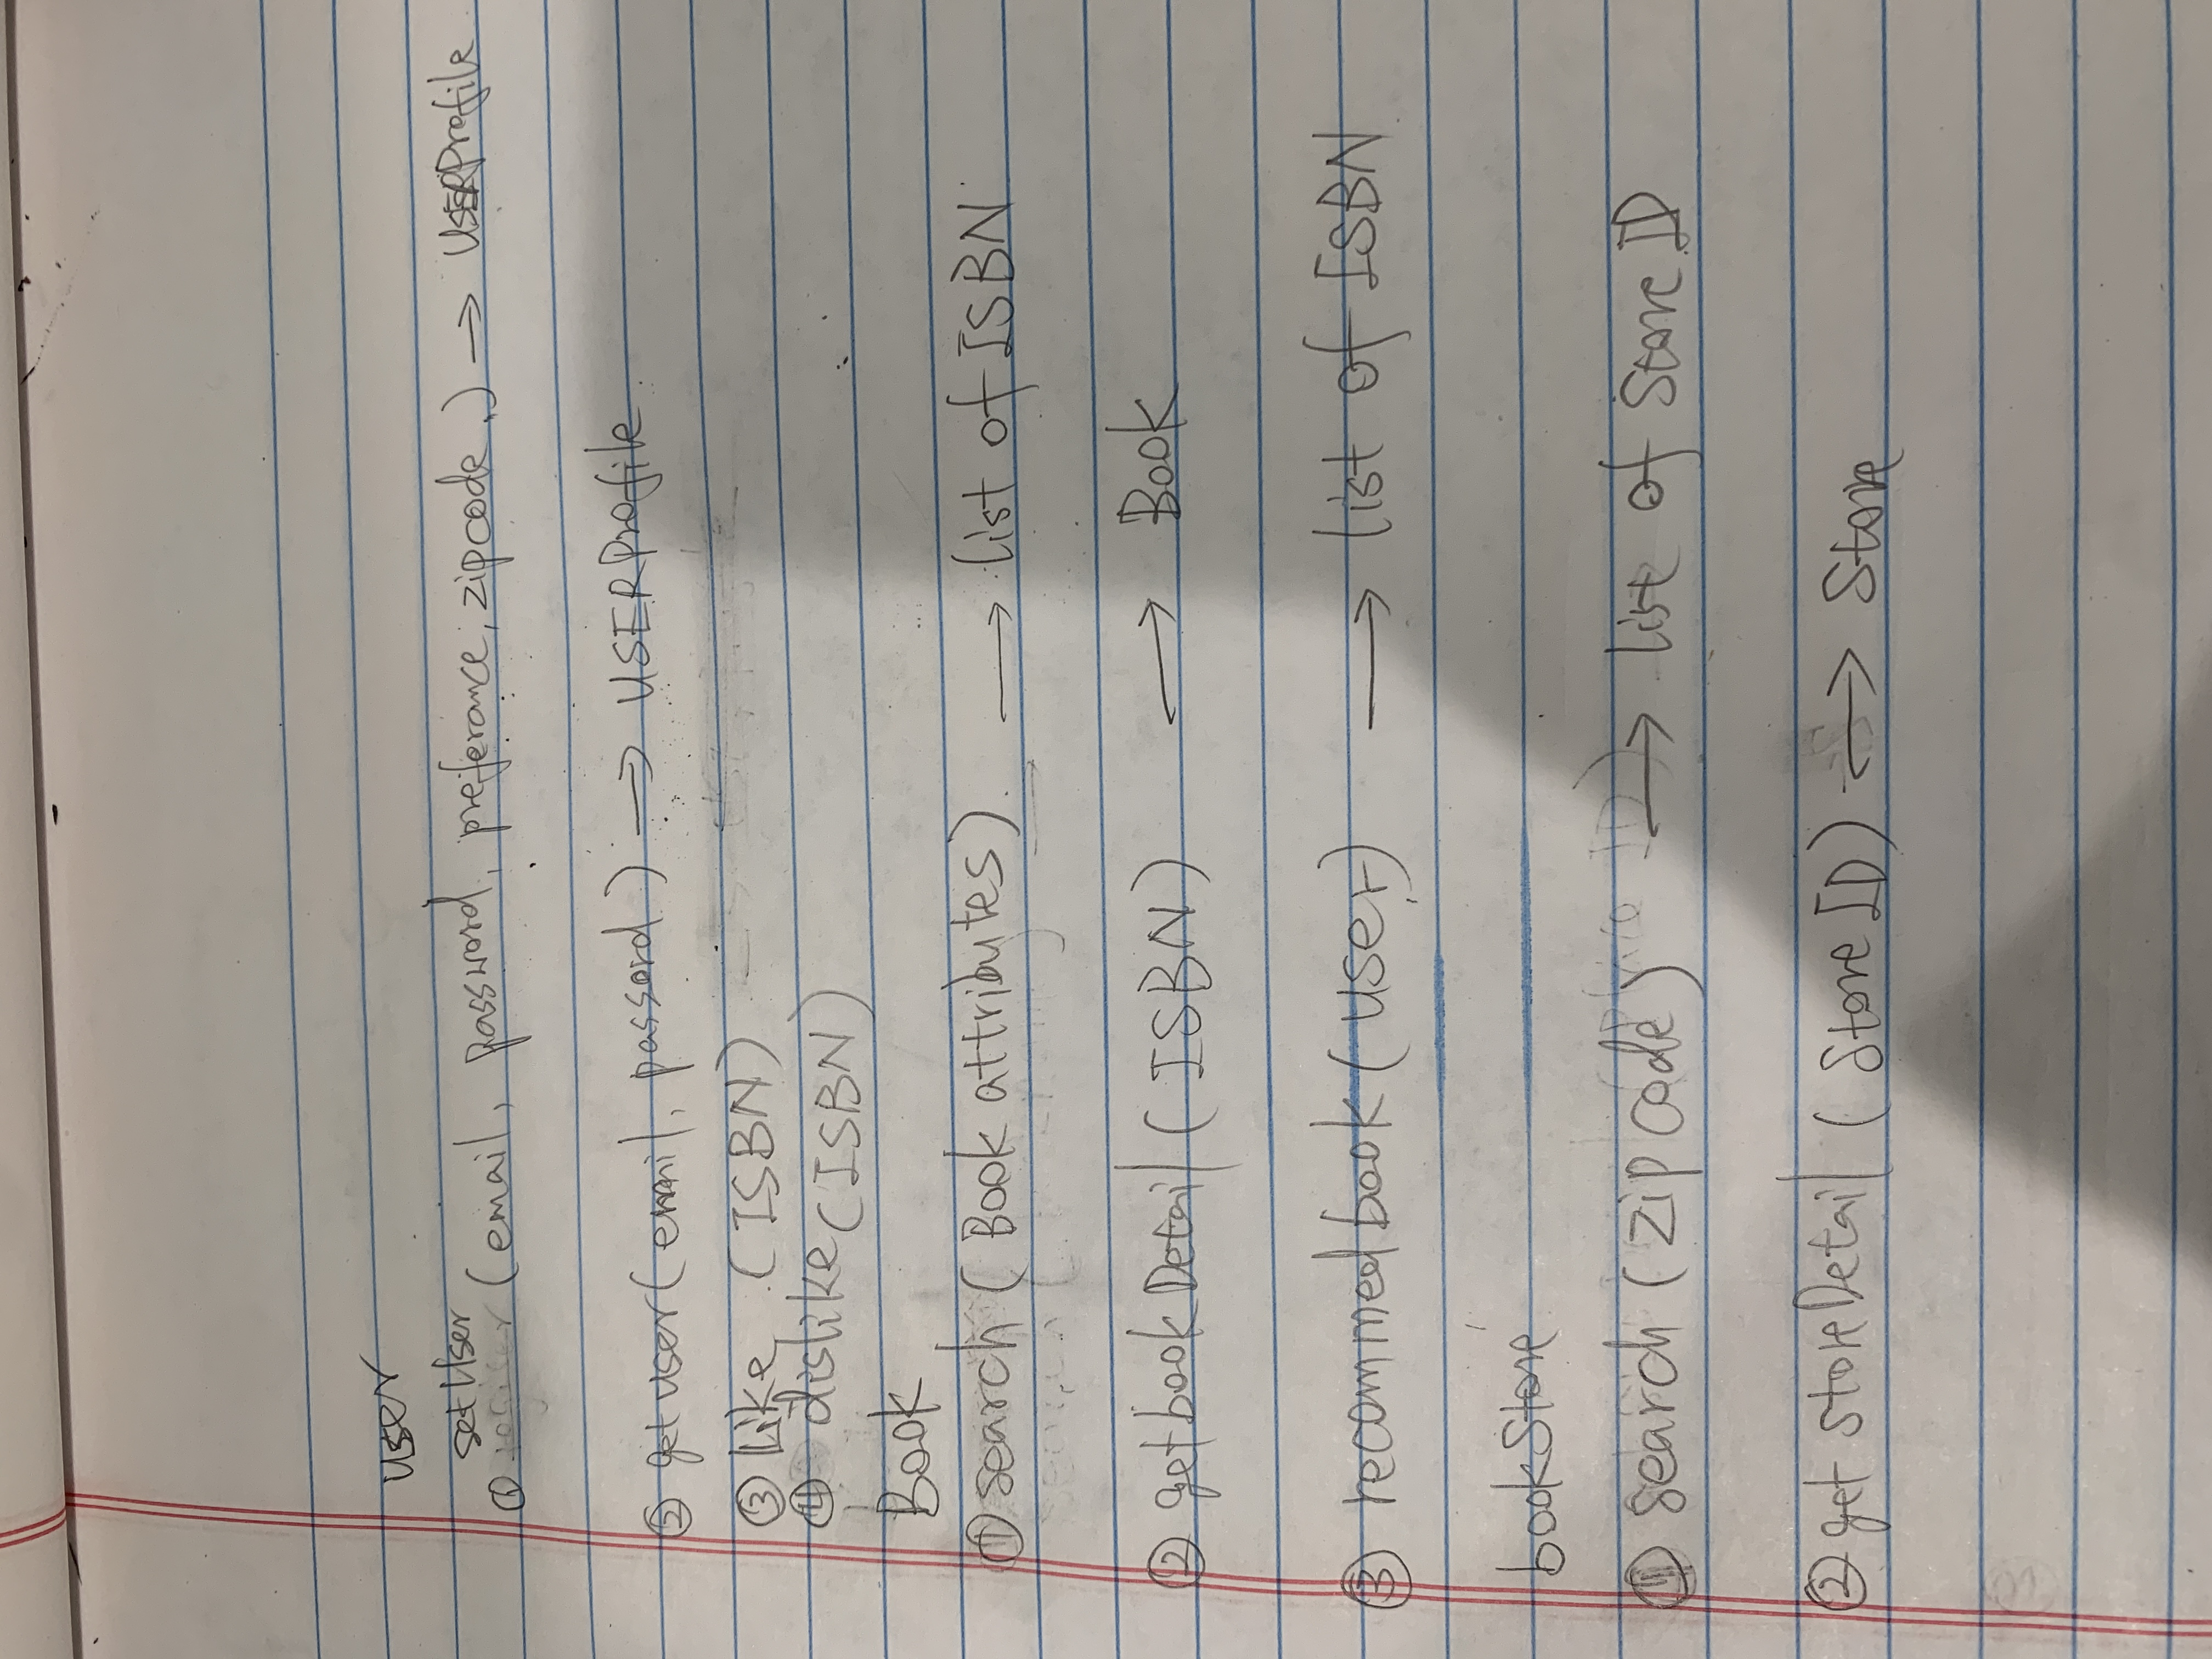 user
setUser
① (email, password, preferance, zipcode,) → USERProfile
② getuser(email, passord) → USERProfile
③ Like (ISBN)
④ dislike (ISBN)
Book
① search ( Book attributes) → list of ISBN
② getbookDetail ( ISBN) → Book
③ recommedbook ( user) → list of ISBN
bookStore
① search ( zip code) → list of Store ID
② get storeDetail ( Store ID) → Store